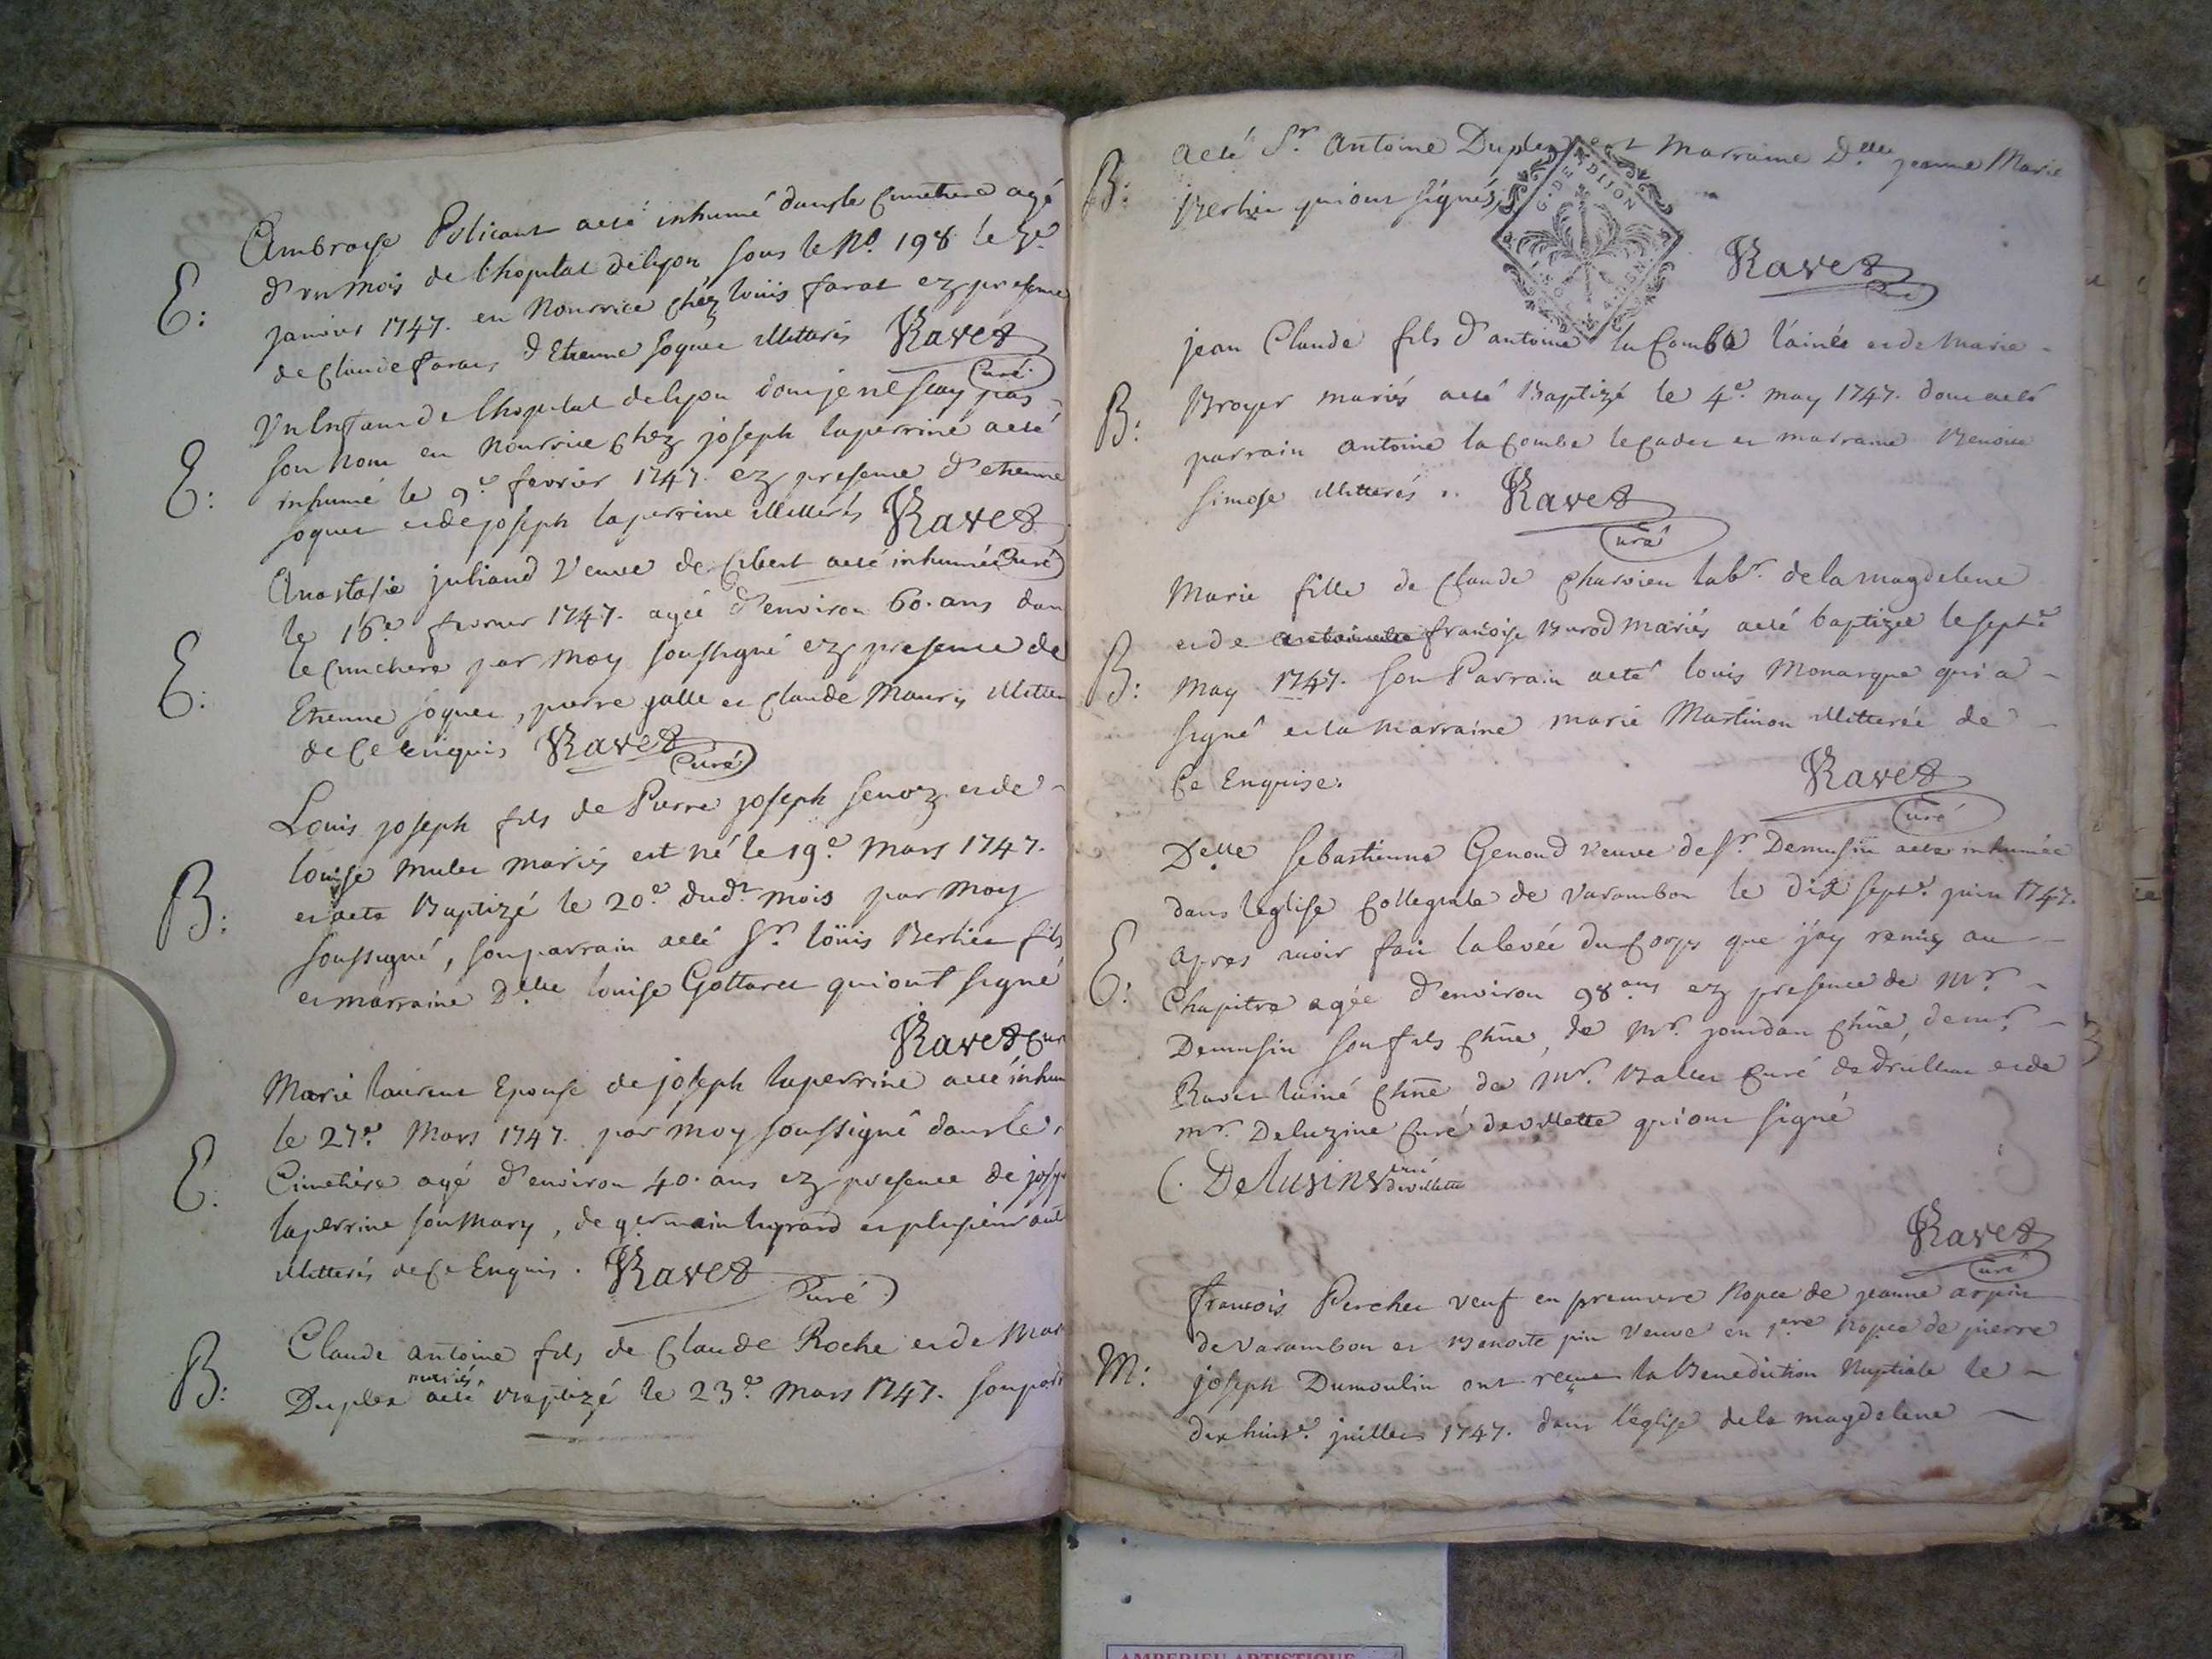 Ambroise Policant aeté inhumé dansle Cimetiere agé
E:
d'un mois de l'hopital delyon sous le N.o 198 le
janvier 1747. en Nourrice chéz loüis farat ez presence
de Claude farat, d'Etienne soquet illitterés Ravet
Curé
Un Enfant de l'hopital delyon dont je ne scay pas
E:
son nom en Nourrice chez joseph laperrine aeté
inhumé le 9.e fevrier 1747. ez presence d'etienne
soquet et de joseph laperrine illitterés Ravet
Curé
Anastasie juliand Veuve de Cibert aeté inhumée
le 16.e fevrier 1747. agée d'environ 60. ans dan
E:
le Cimetiere par moy soussigné ez presence de
Etienne soquet, pierre jalle et Claude Mauris illitter
de Ce enquis Ravet
Curé
Louis joseph fils de Pierre joseph et de
louise mulet mariés est né le 19.e Mars 1747.
B:
et aeté Baptizé le 20.e dud.t mois par moy
soussigné, son parrain aeté S.r loüis Berlier fils
et marraine D.elle louise Gottaret qui ont signé
Ravet Cur
Marie laurent Epouse de joseph laperrine aeté inhum
le 27.e Mars 1747. par moy soussigné dans le
E.
Cimetiere agé d'environ 40. ans ez presence de
laperrine son Mary, de germain et plusieur aut
illitterés de Ce Enquis. Ravet
Curé
Claude antoine fils de Claude Roche et de Mar
mariés
B:
Duplex aeté Baptizé le 23.e Mars 1747. son parr
aeté S.r Antoine Duplex et Marraine D.elle jeanne Marie
B:
Berlier qui ont signés,
G. DE DIJON
Ravet
Curé
jean Claude fils d'antoine la Combe l'ainé et de Marie
Broyer mariés aeté Baptizé le 4.e may 1747. dont aeté
B:
parrain antoine la Combe le Cadet et marraine Benoite
illitterés.. Ravet
Curé
Marie fille de Claude Charvieu lab.r de la magdelene
et de antoinette françoise Burod mariés aeté baptizée le sept.e
B:
May 1747. son Parrain aeté louis Monarque qui a
signé et la Marraine marie Martinon illitterée de
Ce Enquise.
Ravet
Curé
D.elle sebastienne Genoud veuve de S.r Demusin aeté inhumée
dans leglise Collegiale de varambon le dix sept.e juin 1747.
E:
apres avoir fait la levée du Corps que j'ay remis au
Chapitre agée d'environ 98 ans ez presence de M.r
Demusin son fils Chñe, de M.r jourdan Chñe, de m.r
Ravet lainé Chñe de M.r Ballet Curé de druillat et de
m.r Deluzine Curé de villette qui ont signé
C. Delusine curé
de villette
Ravet
Curé
françois Percher veuf en premiere Nopce de jeanne arpin
de varambon et Benoite pin Veuve en 1.ere nopce de pierre
M:
joseph Dumoulin ont reçue la Benediction Nuptiale le
dixhuit.e juillet 1747. dans l'église de la magdelene
AMBERIEU ARTISTIQUE